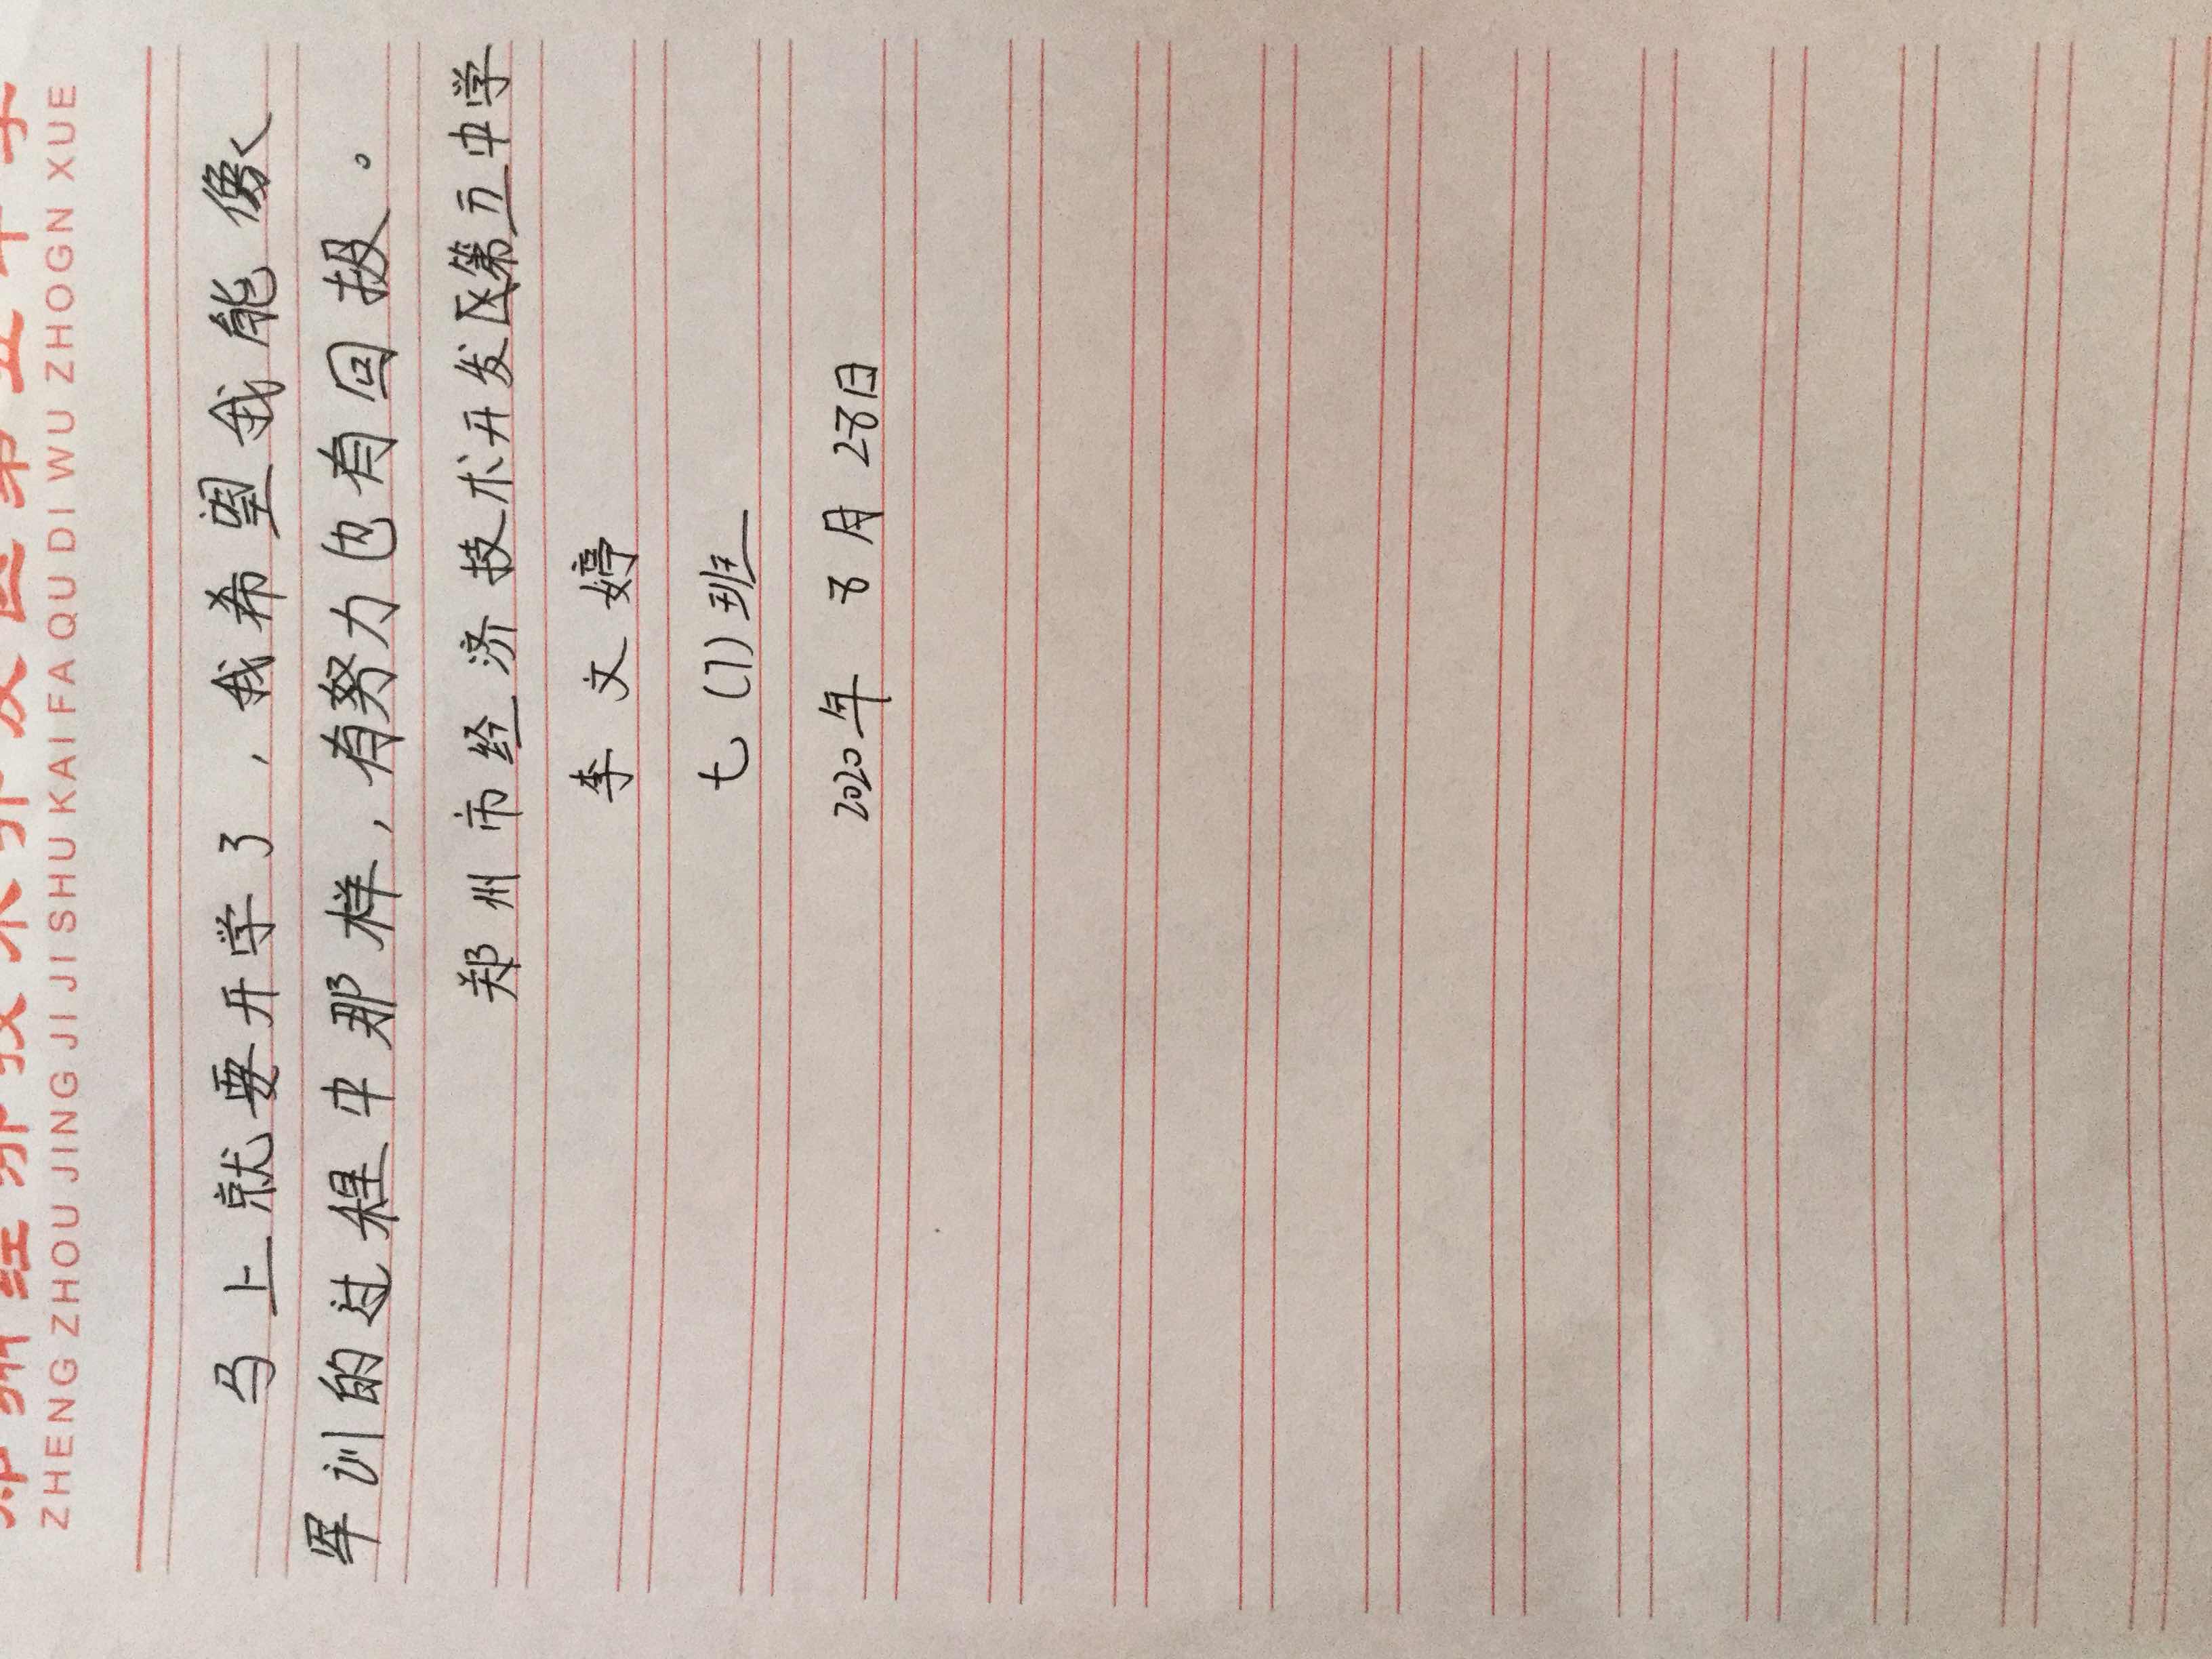 郑州经济技术开发区第五中学
ZHENG ZHOU JING JI JI SHU KAI FA QU DI WU ZHOGN XUE
马上就要开学了，我希望我能像
军训的过程中那样，有努力也有回报。
郑州市经济技术开发区第五中学
李文婷
七（1）班
2020年 8月 28日